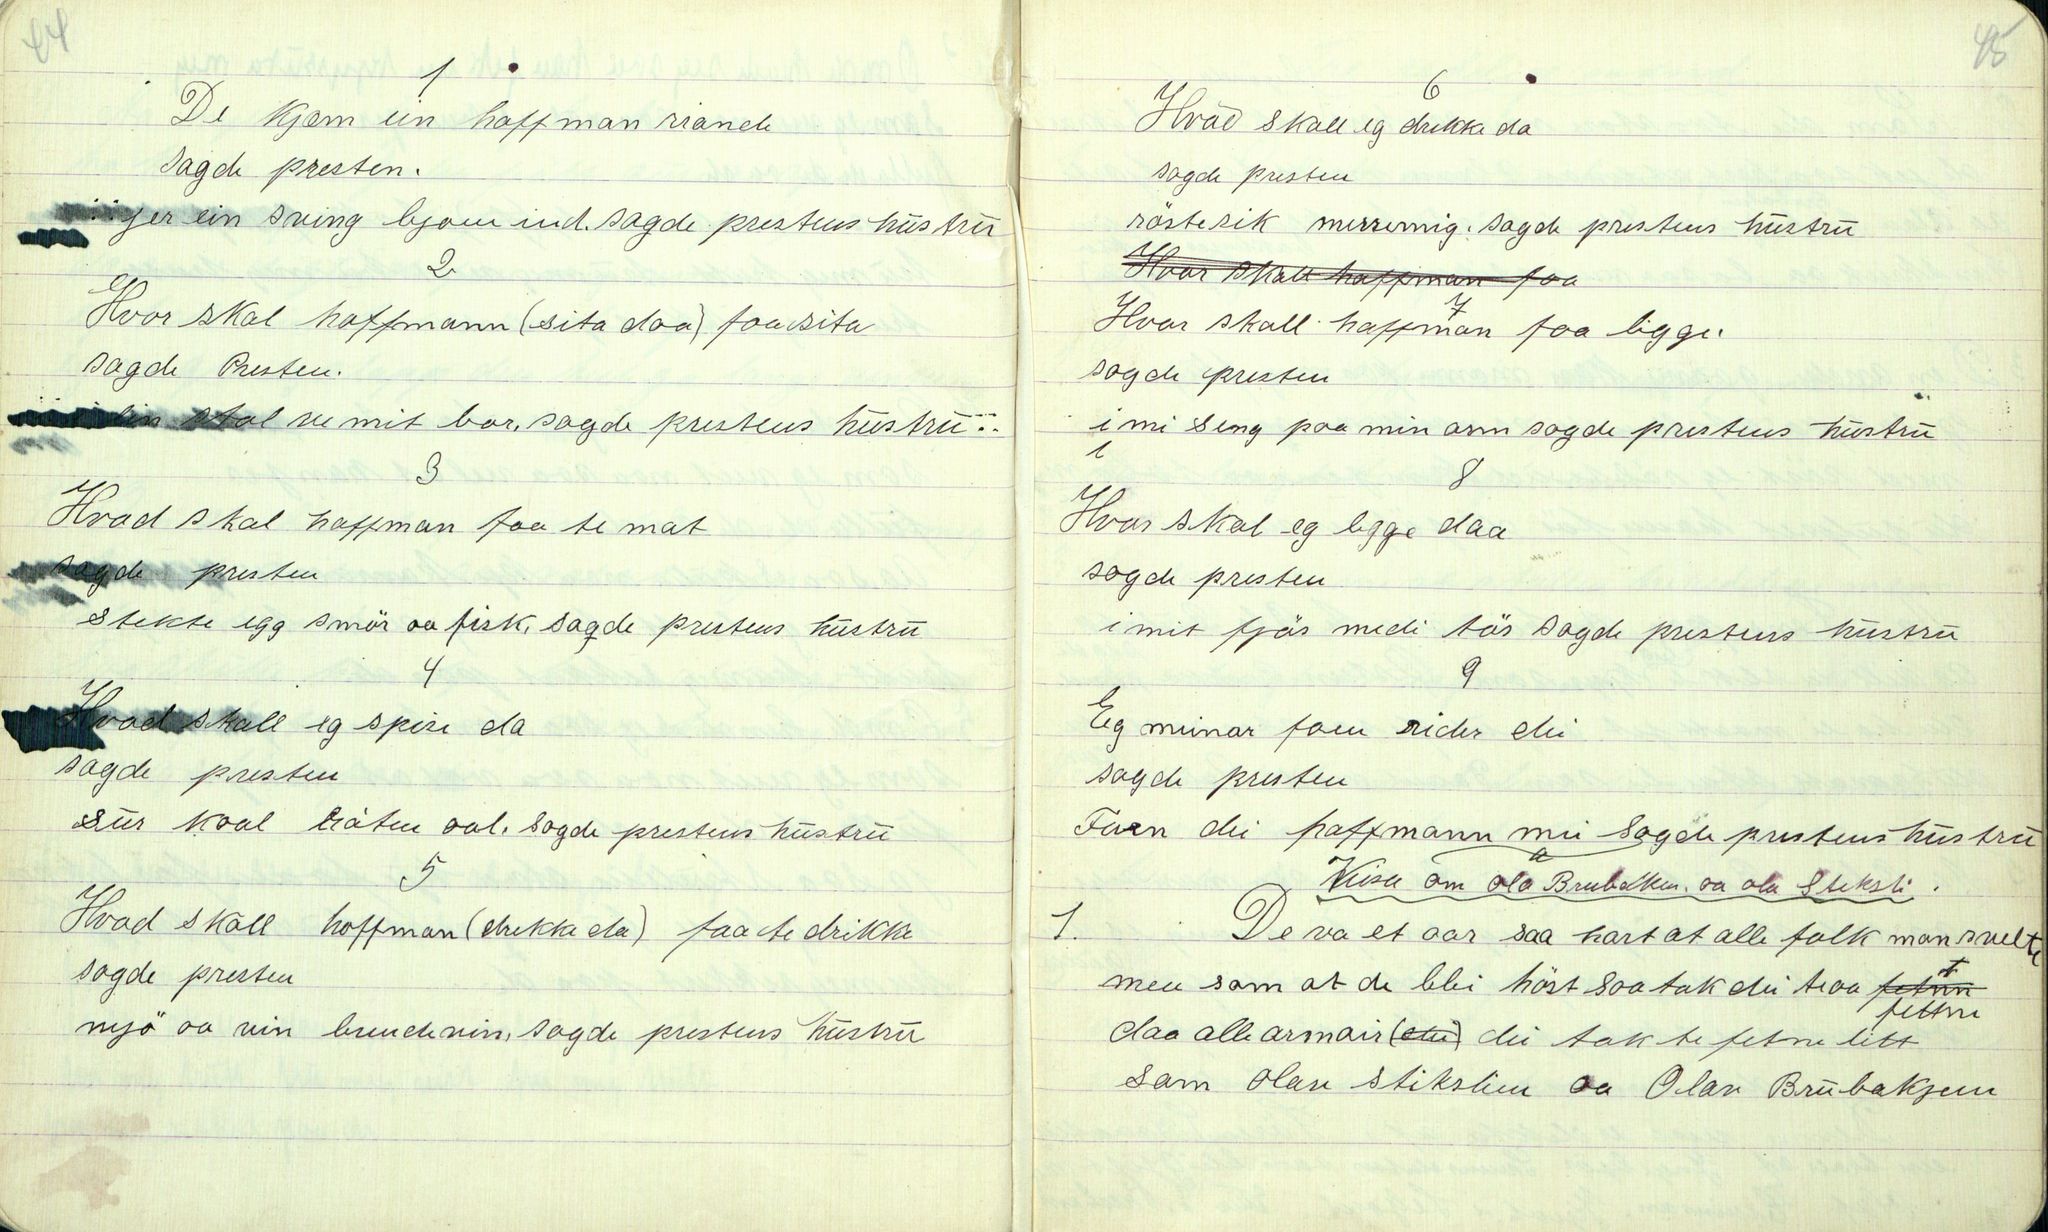 44
1
De kjæm ein hoffman riande
sagde presten.
gjer ein sving bjoen ind. sagde prestens hustru
2
Hvor skal hoffmann (sita daa) faa sita
sagde Presten.
ein stol ve mit bor, sagde prestens hustru
3
Hvad skal hoffman faa te mat
sagde presten
stekte egg smör oa fisk, sagde prestens hustru
4
Hvad skall eg spise da
sagde presten
sur kaal tråten aal. sagde prestens hustru
5
Hvad skall hoffman (drekka da) faa te drikke
sagde presten
mjö oa vin brendevin, sagde prestens hustru
45
6
Hvad skall eg drekke da
sagde presten
merremig. sagde prestens hustru
Hvor skall hoffman faa
7
Hvor skall hoffman faa ligge.
sagde presten
i mi seng paa min arm sagde prestens hustru
8
Hvor skal eg ligge daa
sagde presten
i mit fjös medi tös sagde prestens hustru
9
Eg meinar faen rider dei
sagde presten
Faen dei hoffmann mei sagde prestens hustru
Visa om ola Brubakken. oa ola Stiksli.
1. De va et aar saa hart at alle folk mon svelte
men som at de blei höst saa tok dei te oa fetne
daa alle armair (dei) dei tok te fetne litt
som Olav Stikslien oa Olav Brubakjen